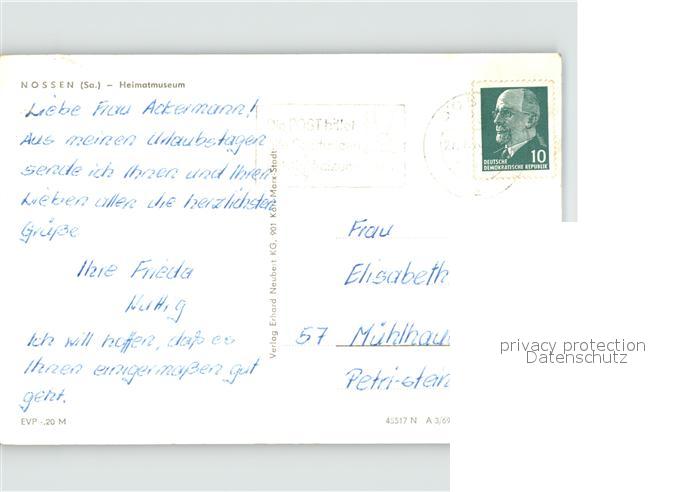 NOSSEN (Sa.) – Heimatmuseum
Liebe Frau Ackermann!
Aus meinen Urlaubstagen
sende ich Ihnen und Ihren
Lieben allen die herzlichsten
Grüße
Ihre Frieda
Huttig
Ich will hoffen, daß es
Ihnen einigermaßen gut
geht.
EVP -,20 M
Verlag Erhard Neubert KG, 901 Karl-Marx-Stadt
Die POST bittet
DEUTSCHE
DEMOKRATISCHE REPUBLIK
10
Frau
Elisabeth
57 Mühlhau
Petri-stein
45517 N A 3/69
privacy protection
Datenschutz